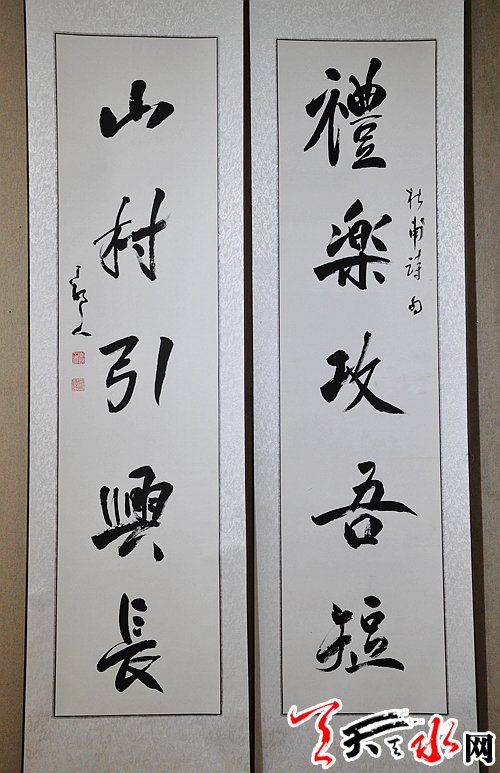 禮樂攻吾短
杜甫詩句
山村引興長
天天水网